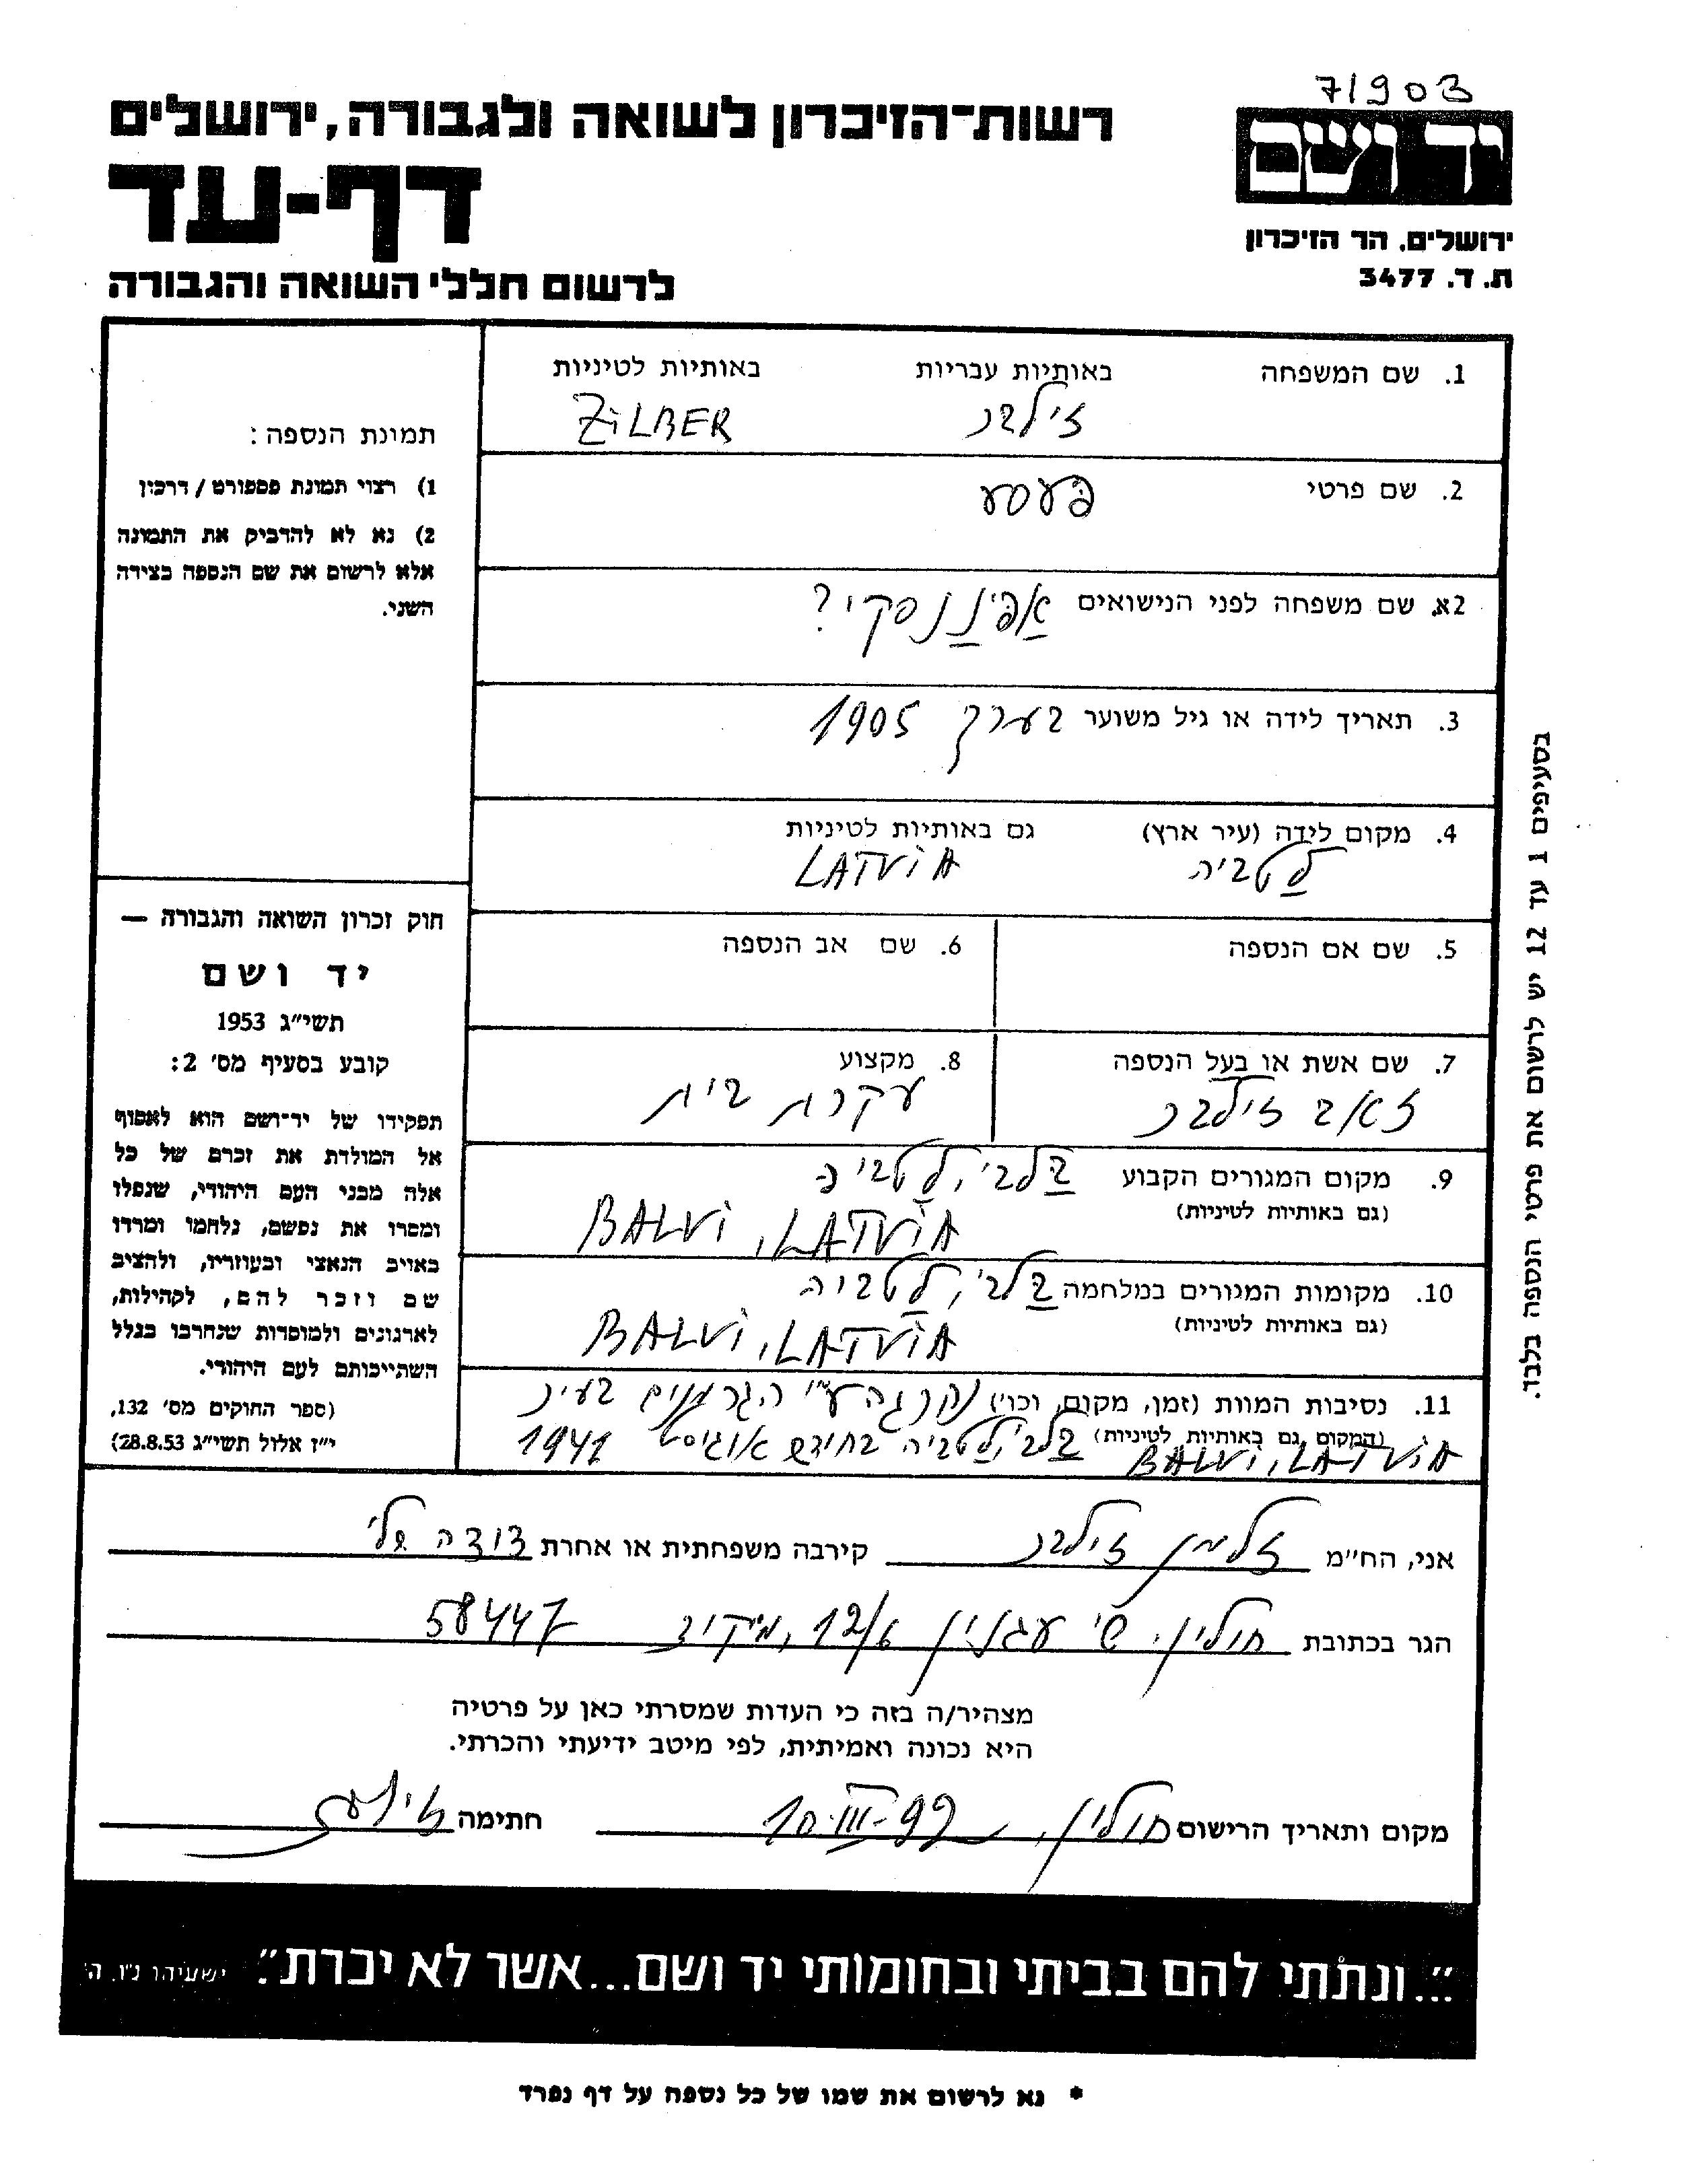 71903
יד ושם
רשות־הזיכרון לשואה ולגבורה, ירושלים
דף-עד
לרשום חללי השואה והגבורה
ירושלים, הר הזיכרון
ת. ד. 3477
1. שם המשפחה באותיות עבריות באותיות לטיניות
זילבר ZiLBER
2. שם פרטי
פּעסע
2א. שם משפחה לפני הנישואים
3. תאריך לידה או גיל משוער בערך 1905
4. מקום לידה (עיר ארץ) גם באותיות לטיניות
לַטביה LATViA
5. שם אם הנספה 6. שם אב הנספה
7. שם אשת או בעל הנספה 8. מקצוע
זאב זילבר עקרת בית
9. מקום המגורים הקבוע בַּלבי, לַטביה
(גם באותיות לטיניות) BALVi, LATViA
10. מקומות המגורים במלחמה בַּלבי, לַטביה
(גם באותיות לטיניות) BALVi, LATViA
11. נסיבות המוות (זמן, מקום, וכו׳) נקרגה ע"י הגרמנים בעיר
(המקום גם באותיות לטיניות) בַּלבי, לַטביה בחודש אוגוסט 1941
BALVi, LATViA
תמונת הנספה:
1) רצוי תמונת פספורט/דרכון
2) נא לא להדביק את התמונה
אלא לרשום את שם הנספה בצידה
השני.
חוק זכרון השואה והגבורה —
יד ושם
תשי״ג 1953
קובע בסעיף מס׳ 2:
תפקידו של יד־ושם הוא לאסוף
אל המולדת את זכרם של כל
אלה מבני העם היהודי, שנפלו
ומסרו את נפשם, נלחמו ומרדו
באויב הנאצי ובעוזריו, ולהציב
שם וזכר להם, לקהילות,
לארגונים ולמוסדות שנחרבו בגלל
השתייכותם לעם היהודי.
(ספר החוקים מס׳ 132,
י״ז אלול תשי״ג 28.8.53)
בסעיפים 1 עד 12 יש לרשום את פרטי הנספה בלבד.
אני, הח״מ זלמן זילבר קירבה משפחתית או אחרת דודה שלי
הגר בכתובת חולון, 12/א, מיקוד 58447
מצהיר/ה בזה כי העדות שמסרתי כאן על פרטיה
היא נכונה ואמיתית, לפי מיטב ידיעתי והכרתי.
מקום ותאריך הרישום חולון, 10-III-99 חתימה
"...ונתתי להם בביתי ובחומותי יד ושם...אשר לא יכרת". ישעיהו נ״ו, ה׳
* נא לרשום את שמו של כל נספה על דף נפרד